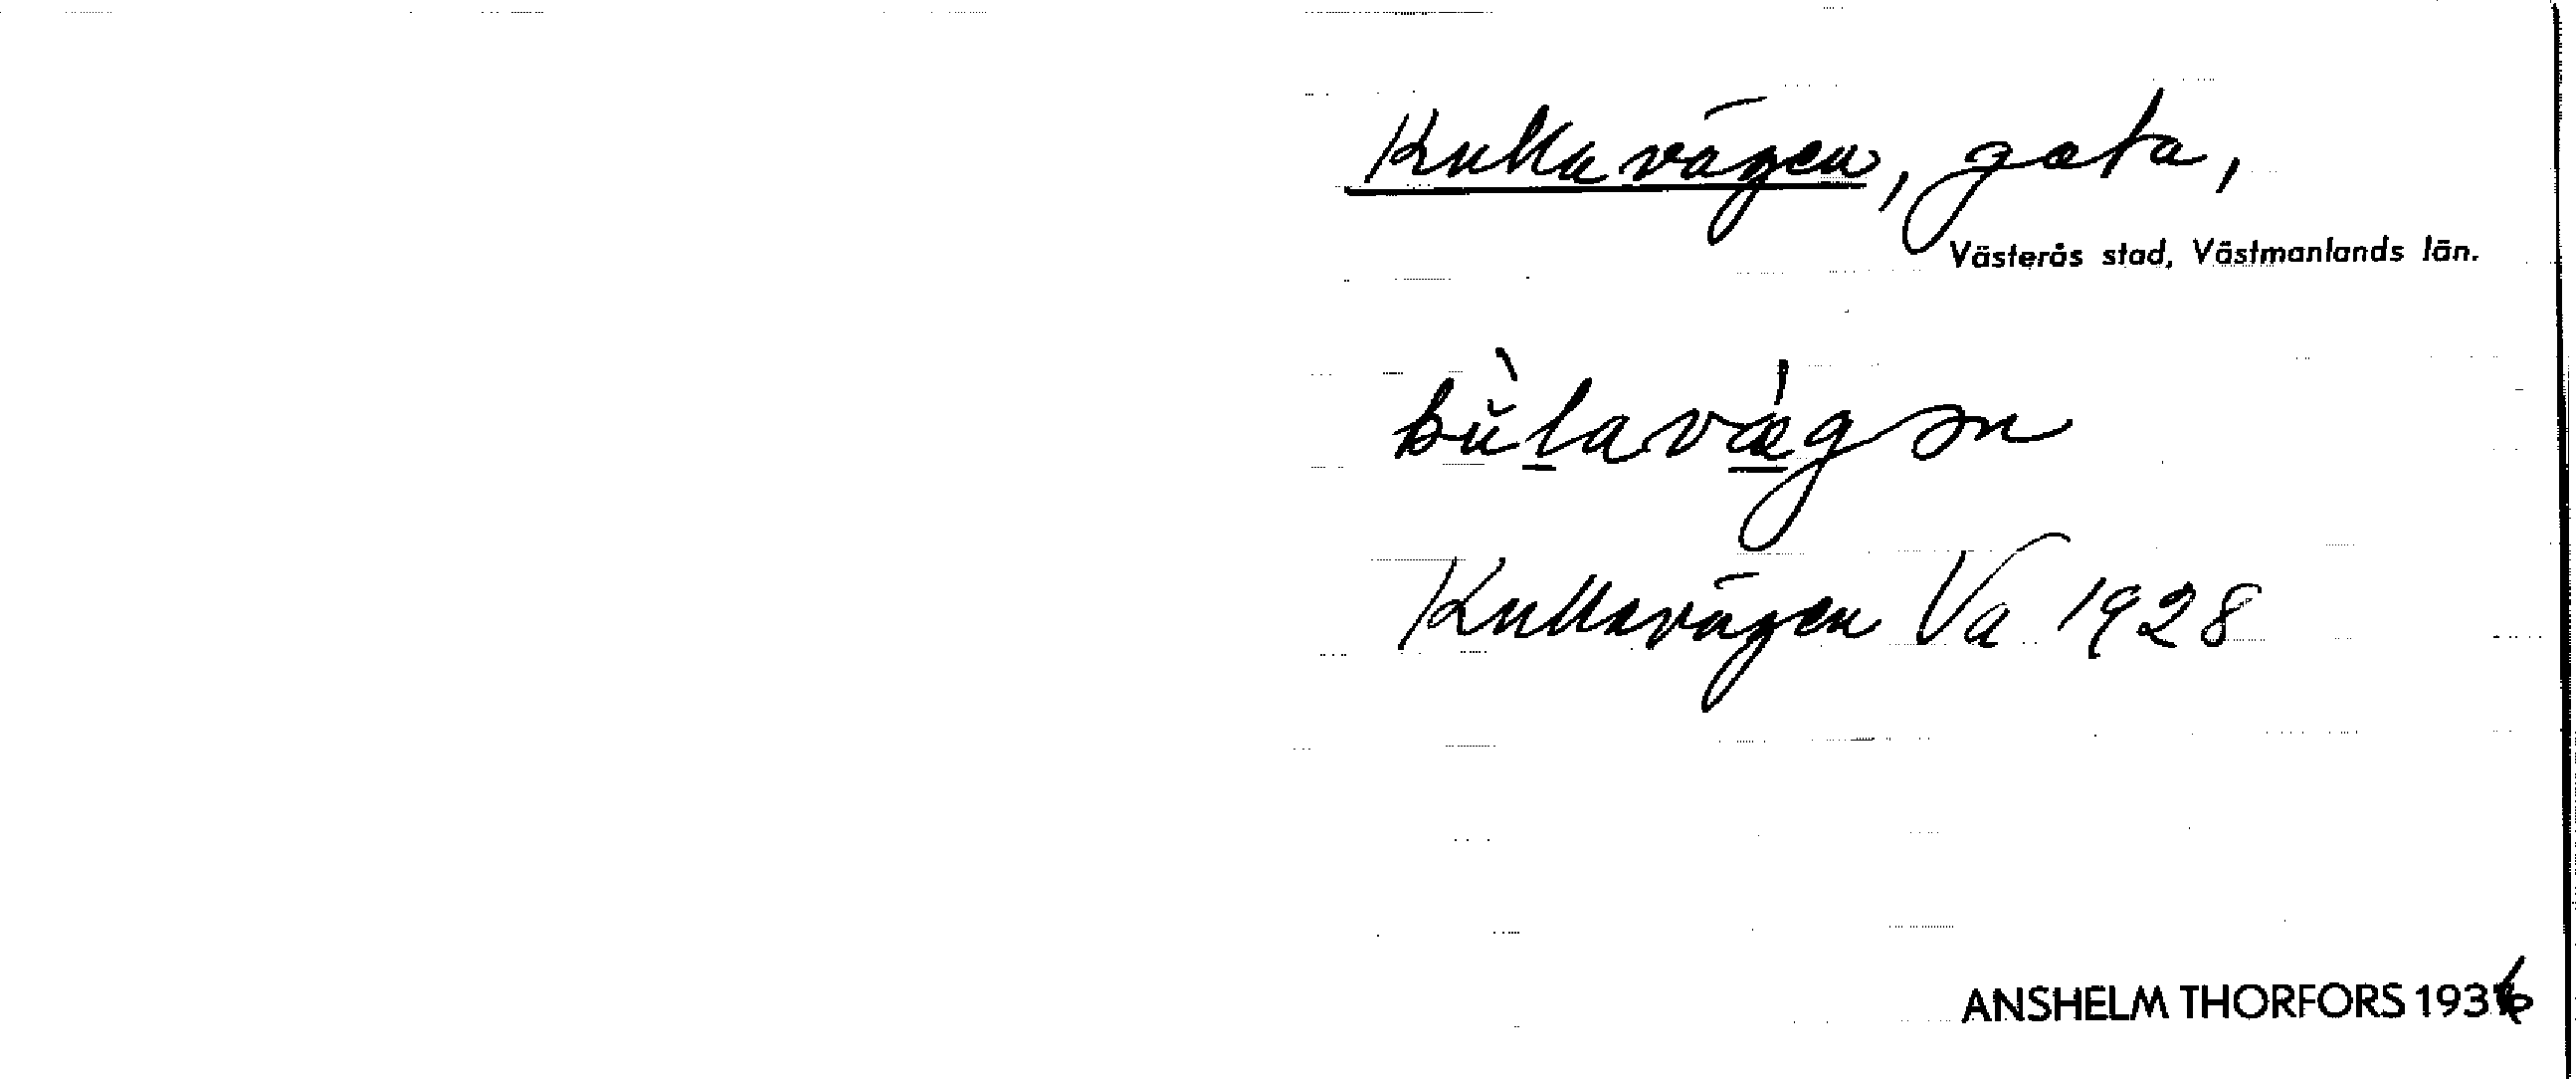 Kullavägen, gata,
Västerås stad, Västmanlands län.
kŭ̀lavǽgən
Kullavägen Va 1928
ANSHELM THORFORS 1936